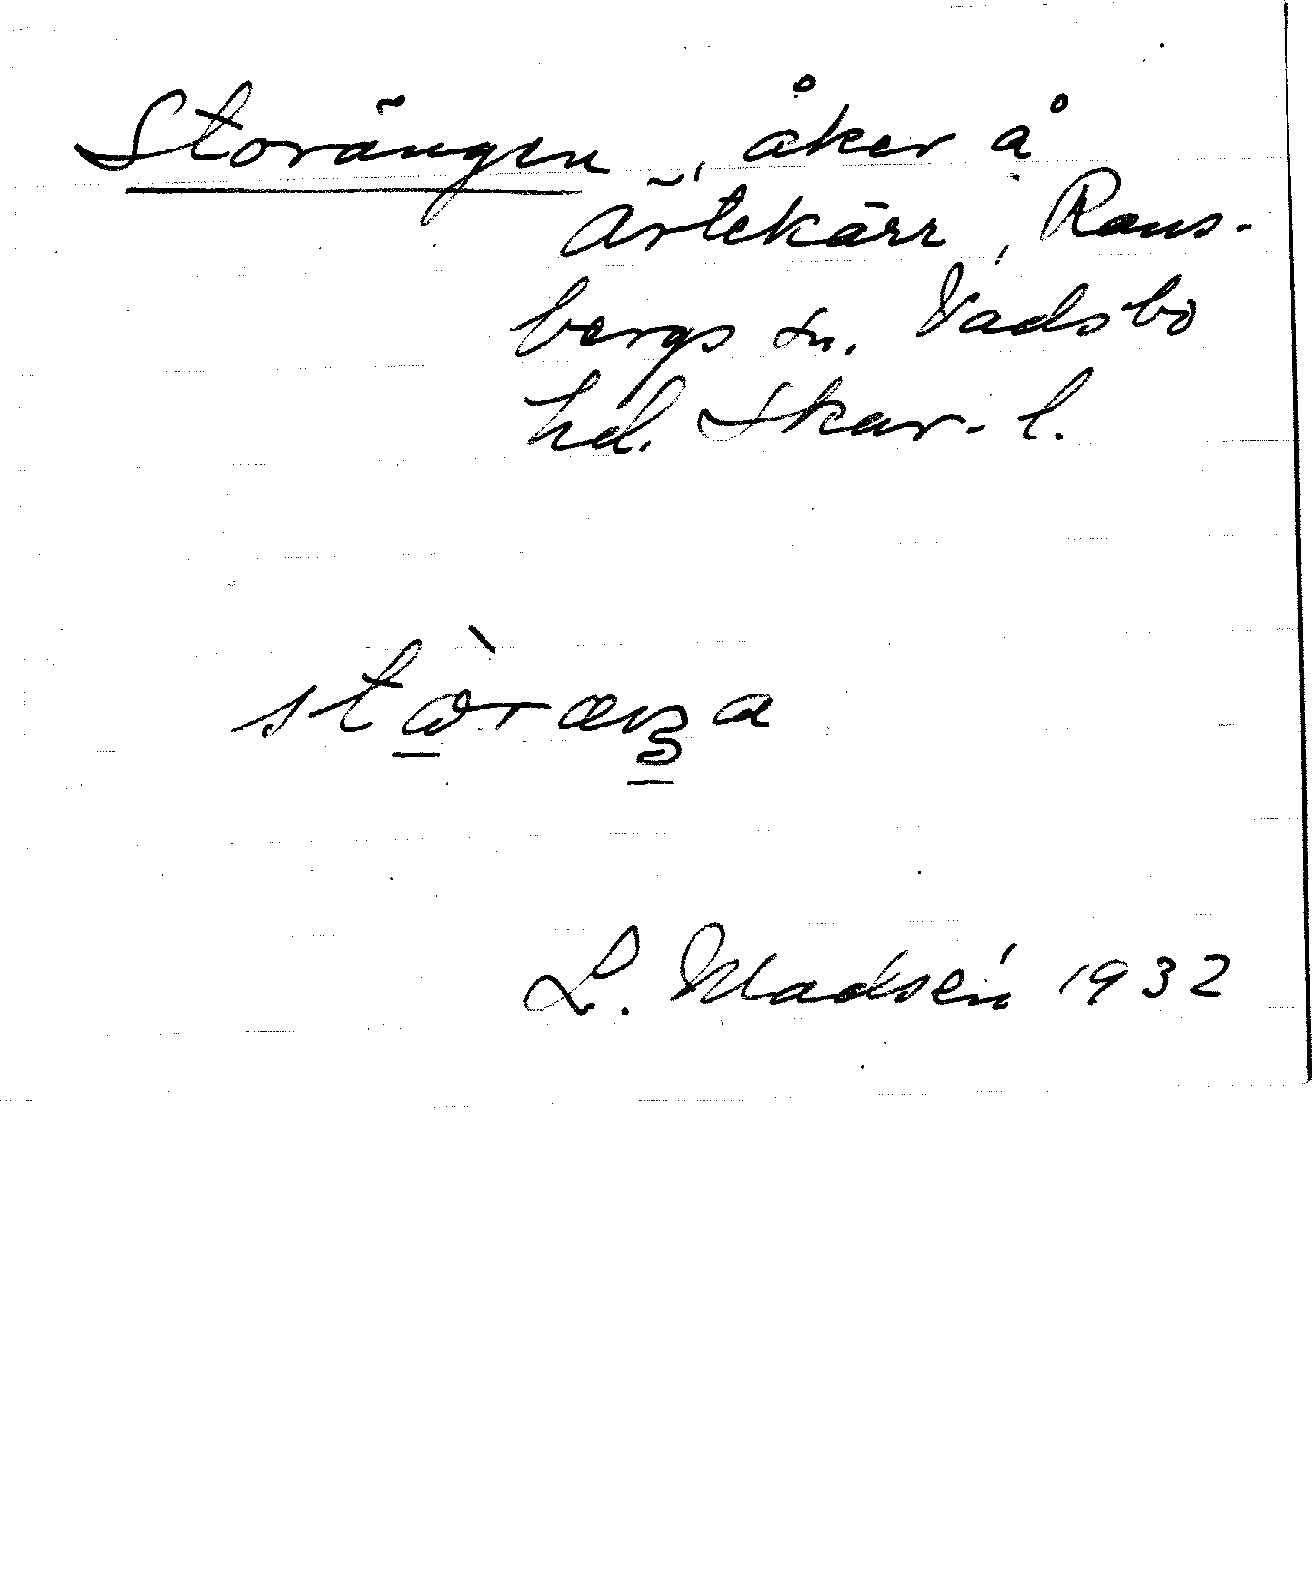 Storängen, åker å
Ärtekärr, Rans-
bergs sn. Vadsbo
hd. Skar. l.
L. Madsén 1932